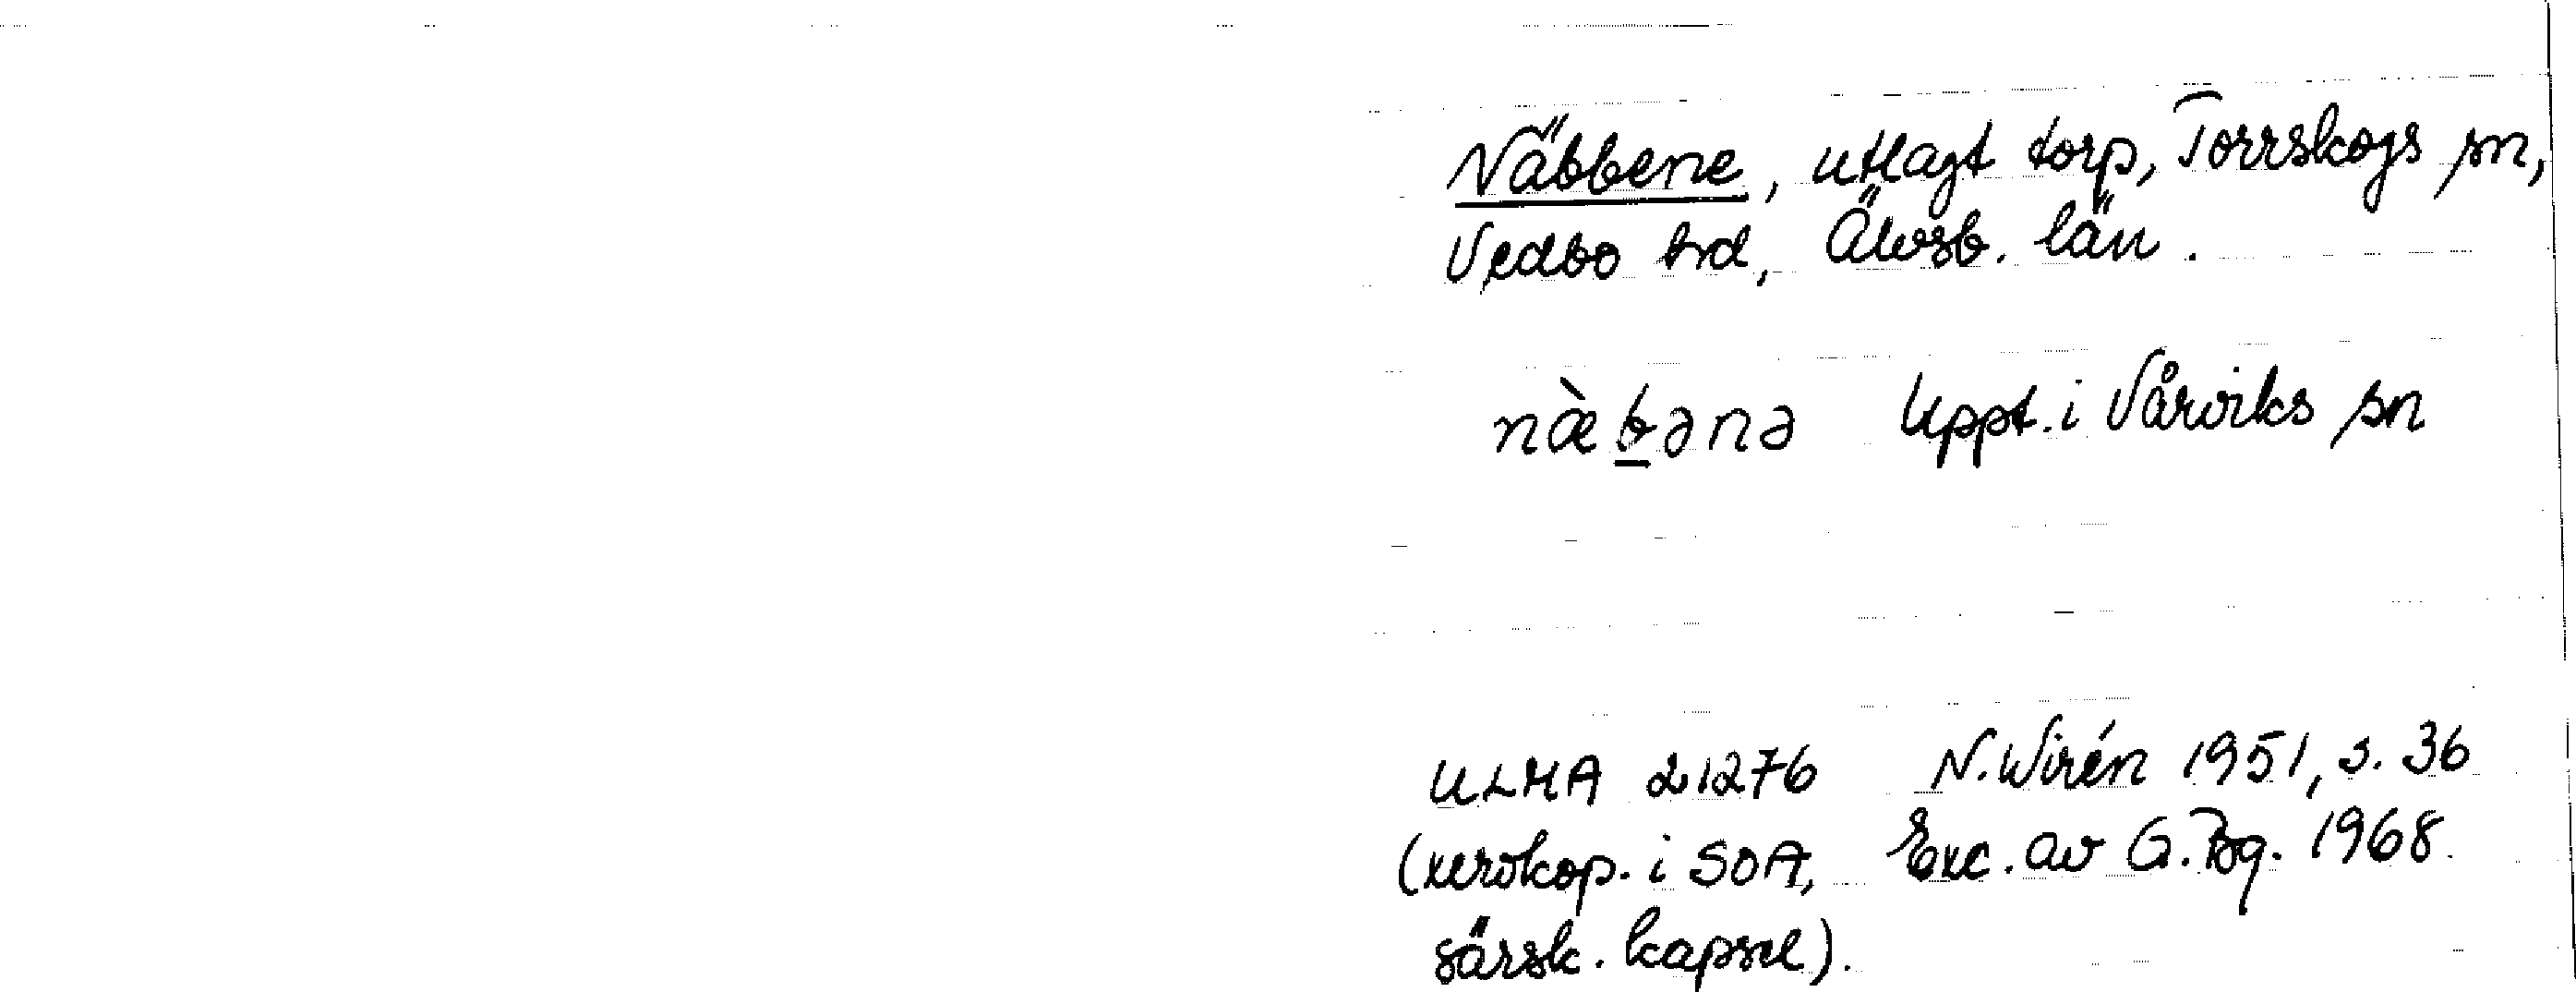 Näbbene, utlagt torp, Torrskogs sn,
Vedbo hd, Älvsb. län.
næ̀b̲ənə Uppt. i Vårviks sn
ULMA 21276 N. Wirén 1951, s. 36
(xerokop. i SOA, Exc. av G. Bg. 1968.
särsk. kapsel).